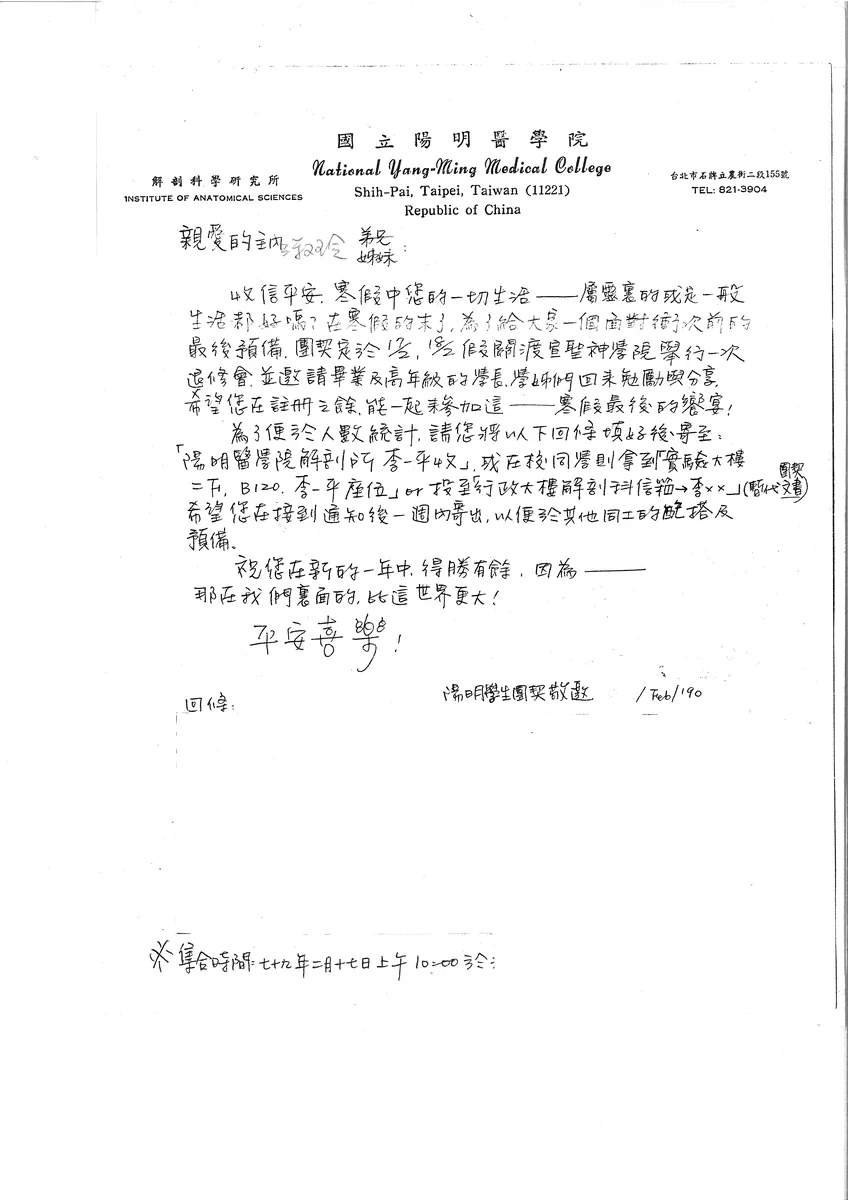 國立陽明醫學院
National Yang-Ming Medical College
解剖科學研究所
INSTITUTE OF ANATOMICAL SCIENCES
Shih-Pai, Taipei, Taiwan (11221)
Republic of China
台北市石牌立農街二段155號
TEL: 821-3904
親愛的主內 弟兄 姊妹:
收信平安. 寒假中您的一切生活——屬靈裏的或是一般
生活都好嗎? 在寒假的末了, 為了給大家一個面對衝次前的
最後預備. 團契定於 假關渡宣聖神學院舉行一次
退修會. 並邀請畢業及高年級的學長.學姊們回來勉勵與分享.
希望您在註冊之餘.能一起來參加這——寒假最後的饗宴!
為了便於人數統計, 請您將以下回條填好後寄至:
「陽明醫學院解剖所 李一平收」, 或在校同學則拿到「實驗大樓
二F, B120. 李一平座位」or 投至「行政大樓解剖科信箱→李××」(暫代團契文書)
希望您在接到通知後一週內寄出, 以便於其他同工的配搭及
預備。
祝您在新的一年中. 得勝有餘, 因為——
那在我們裏面的, 比這世界更大!
平安喜樂!
陽明學生團契敬邀 1/Feb/'90
回條:
※ 集合時間: 七十九年二月十七日上午10:00於: